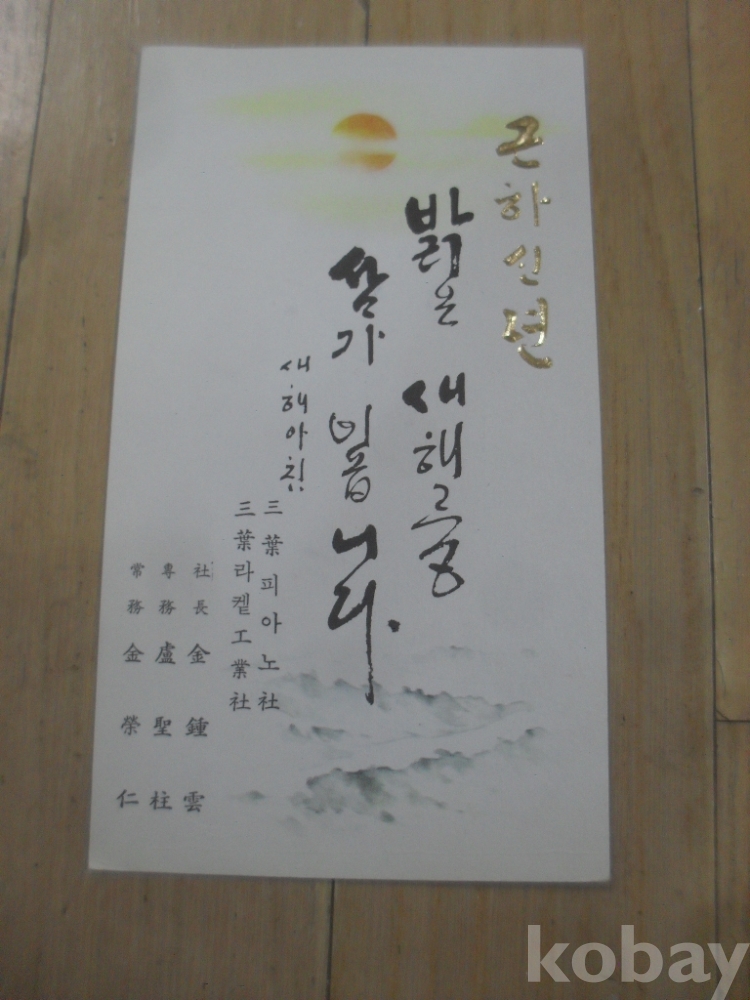 근하신년
밝은 새해를
삼가 빕니다.
새해아침
三葉피아노社
三葉라켙工業社
社長 金鍾雲
專務 盧聖柱
常務 金榮仁
kobay